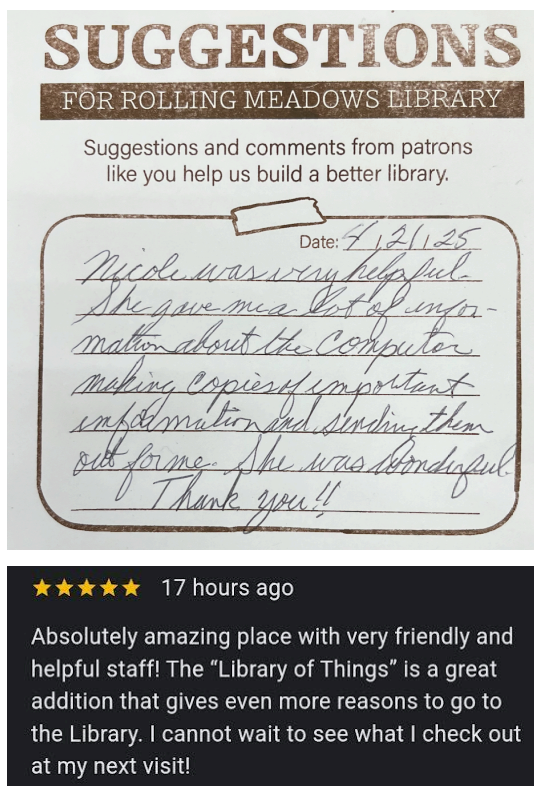 SUGGESTIONS
FOR ROLLING MEADOWS LIBRARY
Suggestions and comments from patrons
like you help us build a better library.
Date: 4/21/25
Nicole was very helpful.
She gave me a lot of infor-
mation about the Computer
making copies of important
information and sending them
out for me. She was Wonderful.
Thank you!!
★★★★★ 17 hours ago
Absolutely amazing place with very friendly and
helpful staff! The “Library of Things” is a great
addition that gives even more reasons to go to
the Library. I cannot wait to see what I check out
at my next visit!